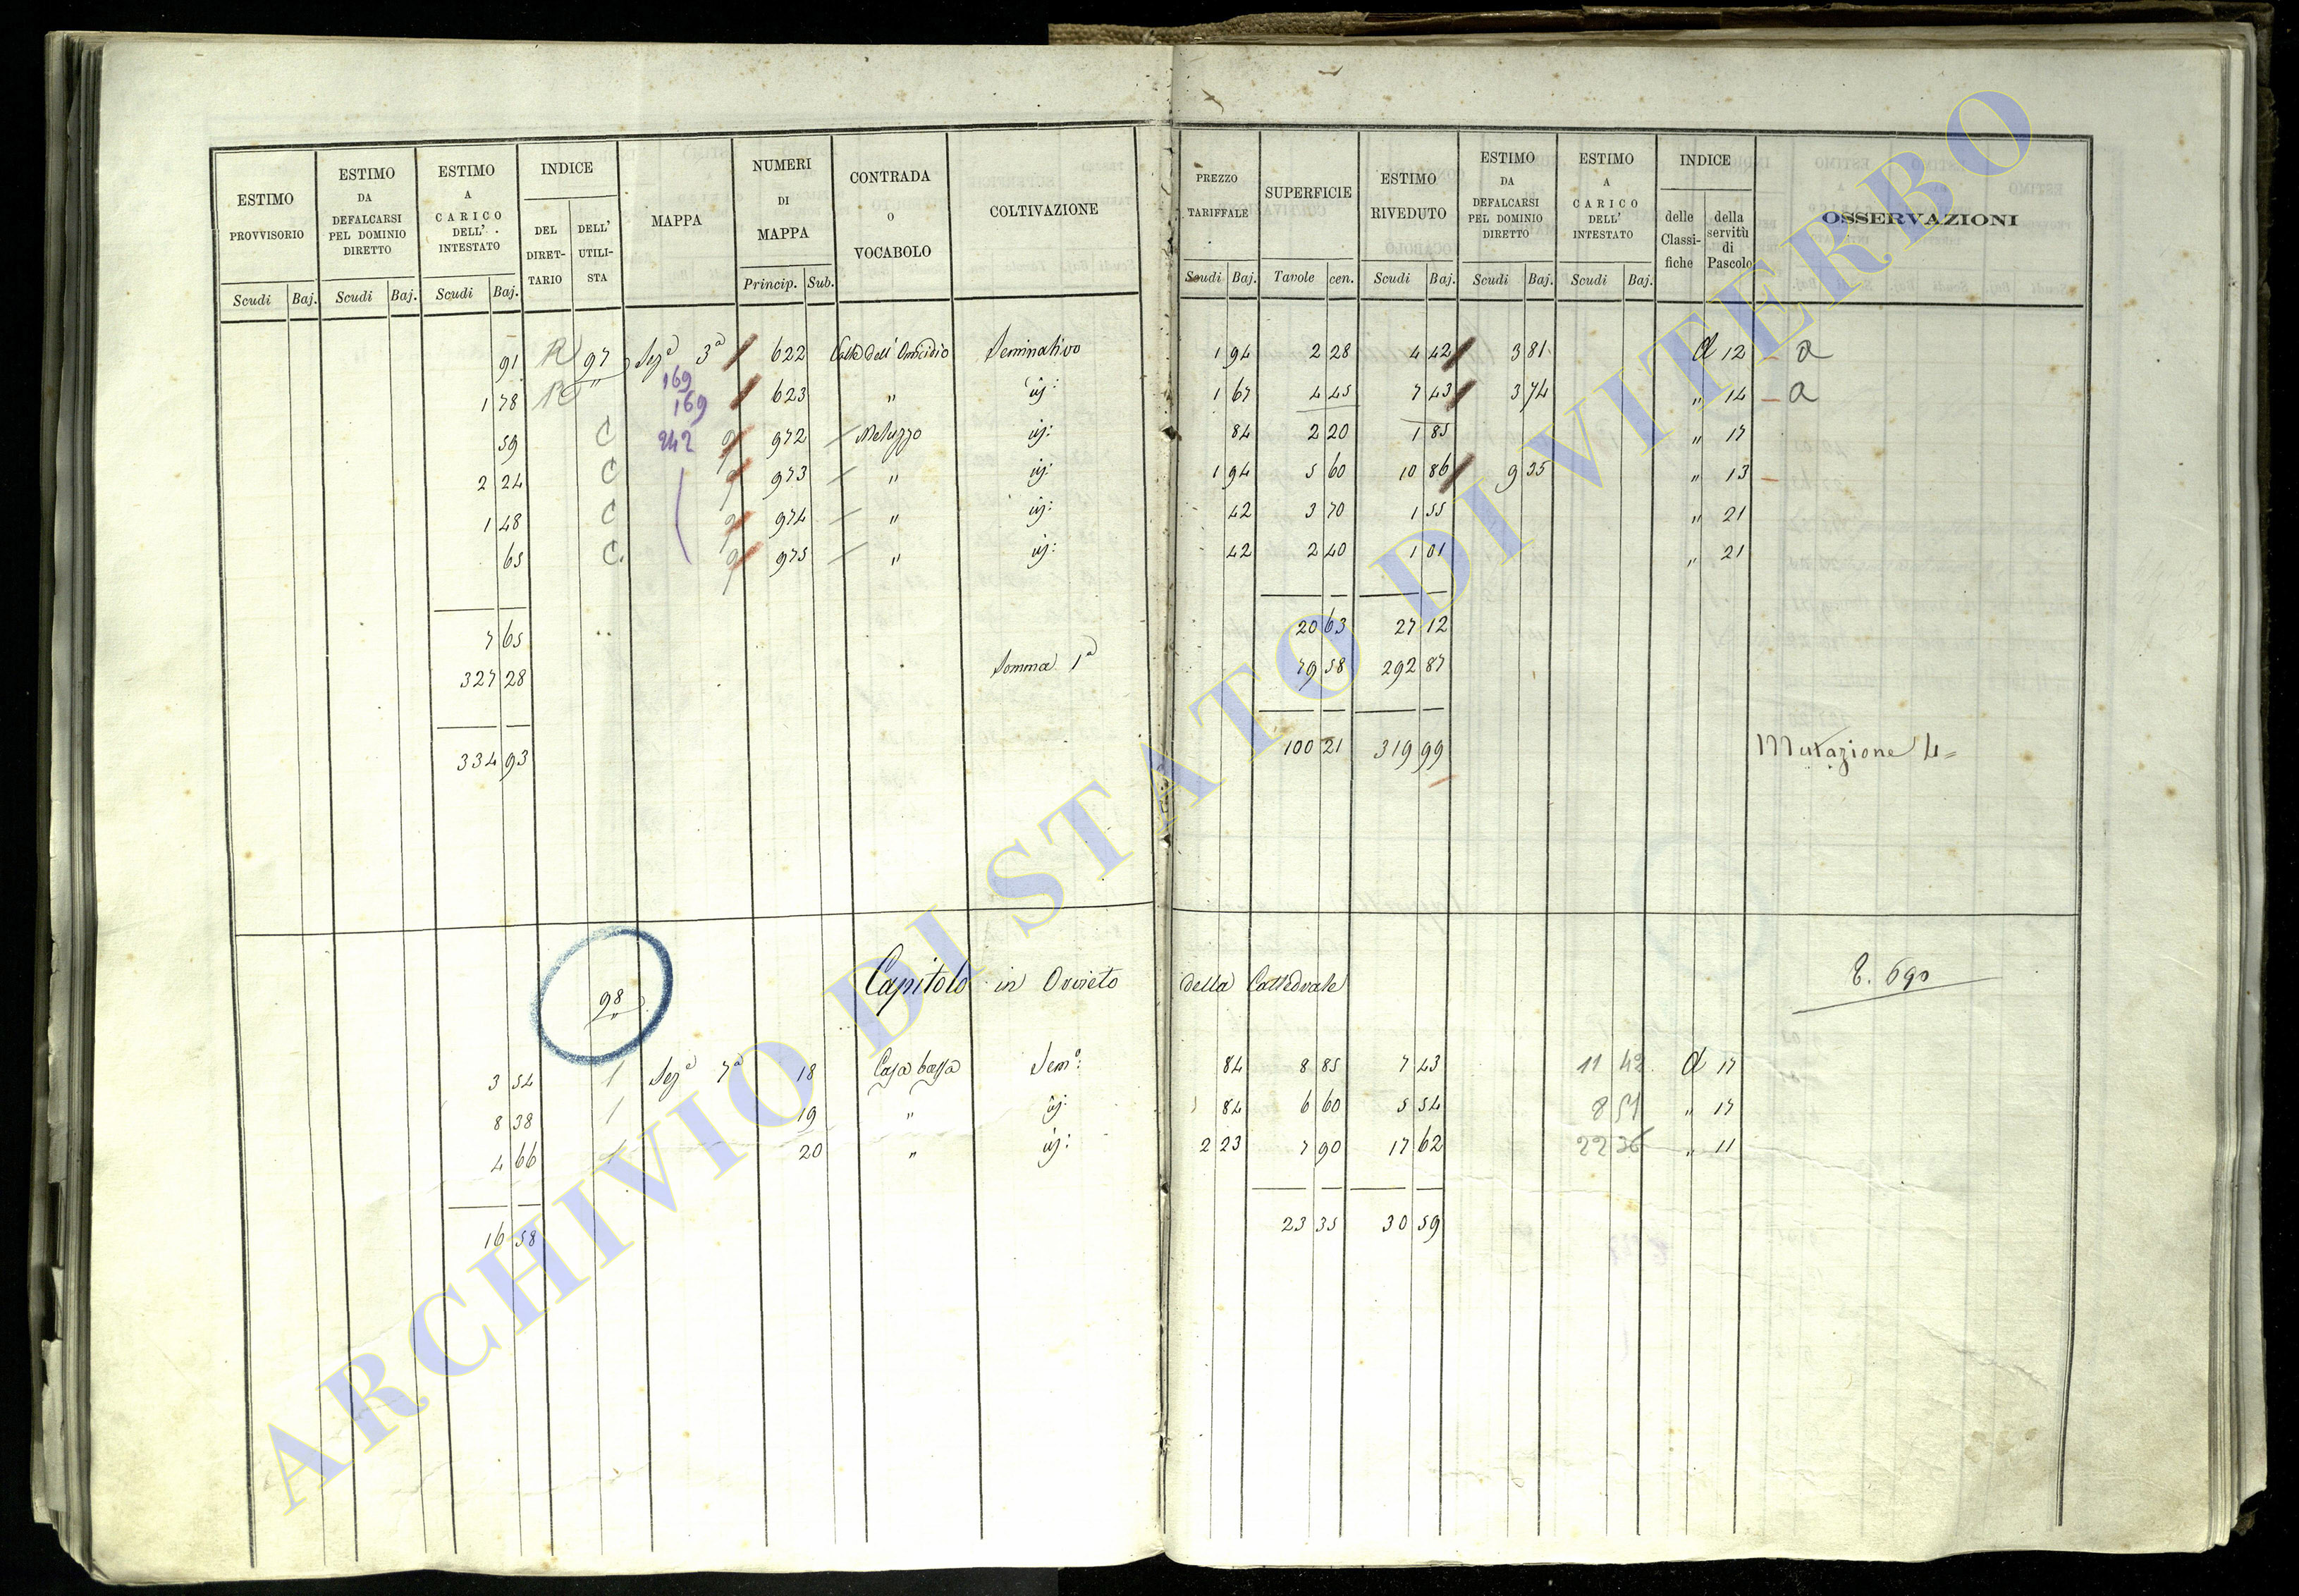 ESTIMO PROVVISORIO Scudi Baj.
ESTIMO DA DEFALCARSI PEL DOMINIO DIRETTO Scudi Baj.
ESTIMO A CARICO DELL' INTESTATO Scudi Baj.
INDICE DEL DIRET-TARIO DELL' UTILI-STA
MAPPA
NUMERI DI MAPPA Princip. Sub.
CONTRADA O VOCABOLO
COLTIVAZIONE
PREZZO TARIFFALE Scudi Baj.
SUPERFICIE Tavole cen.
ESTIMO RIVEDUTO Scudi Baj.
ESTIMO DA DEFALCARSI PEL DOMINIO DIRETTO Scudi Baj.
ESTIMO A CARICO DELL' INTESTATO Scudi Baj.
INDICE delle Classi-fiche della servitù di Pascolo
OSSERVAZIONI
91 R 97 Sezª 3ª 622 Seminativo 1 94 2 28 4 42 3 81 d 12 a
169
1 78 R " 623 " iij: 1 67 4 45 7 43 3 74 " 14 a
169
59 C 242 972 Meluzzo iij: 84 2 20 1 85 " 17
2 24 C 973 " iij: 1 94 5 60 10 86 9 35 " 13
1 48 C 974 " iij: 42 3 70 1 55 " 21
65 C. 975 " iij: 42 2 40 1 01 " 21
7 65 20 63 27 12
327 28 Somma 1ª 79 58 292 87
334 93 100 21 319 99 Mutazione 4=
98 Capitolo in Orvieto della Cattedrale
3 54 1 Sezª 7ª 18 Casa bassa Semº: 84 8 85 7 43 11 42 d 17
8 38 1 19 " iij: 84 6 60 5 54 8 51 " 17
4 66 1 20 " iij: 2 23 7 90 17 62 22 36 " 11
16 58 23 35 30 59
ARCHIVIO DI STATO DI VITERBO